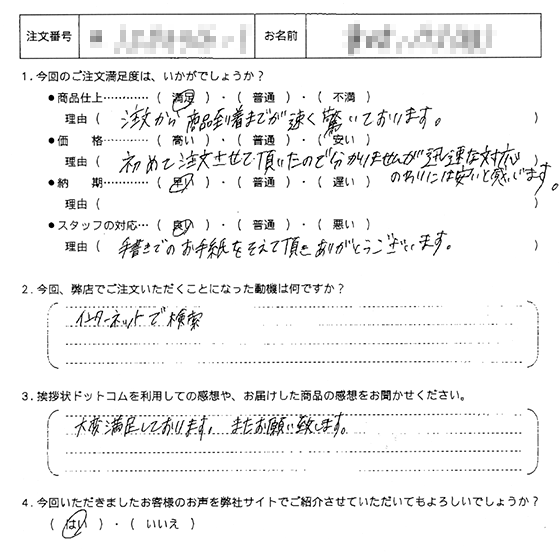 注文番号
お名前
1．今回のご注文満足度は、いかがでしょうか？
●商品仕上…………（　満足　）・（　普通　）・（　不満　）
理由（　注文から商品到着までが速く驚いております。　）
●価　　格…………（　高い　）・（　普通　）・（　安い　）
理由（　初めて注文させて頂いたので分かりませんが迅速な対応　）
のわりには安いと感じます。
●納　　期…………（　早い　）・（　普通　）・（　遅い　）
理由（　）
●スタッフの対応…（　良い　）・（　普通　）・（　悪い　）
理由（　手書きでのお手紙をそえて頂きありがとうございます。　）
2．今回、弊店でご注文いただくことになった動機は何ですか？
インターネットで検索
3．挨拶状ドットコムを利用しての感想や、お届けした商品の感想をお聞かせください。
大変満足しております。またお願い致します。
4．今回いただきましたお客様のお声を弊社サイトでご紹介させていただいてもよろしいでしょうか？
（　はい　）・（　いいえ　）